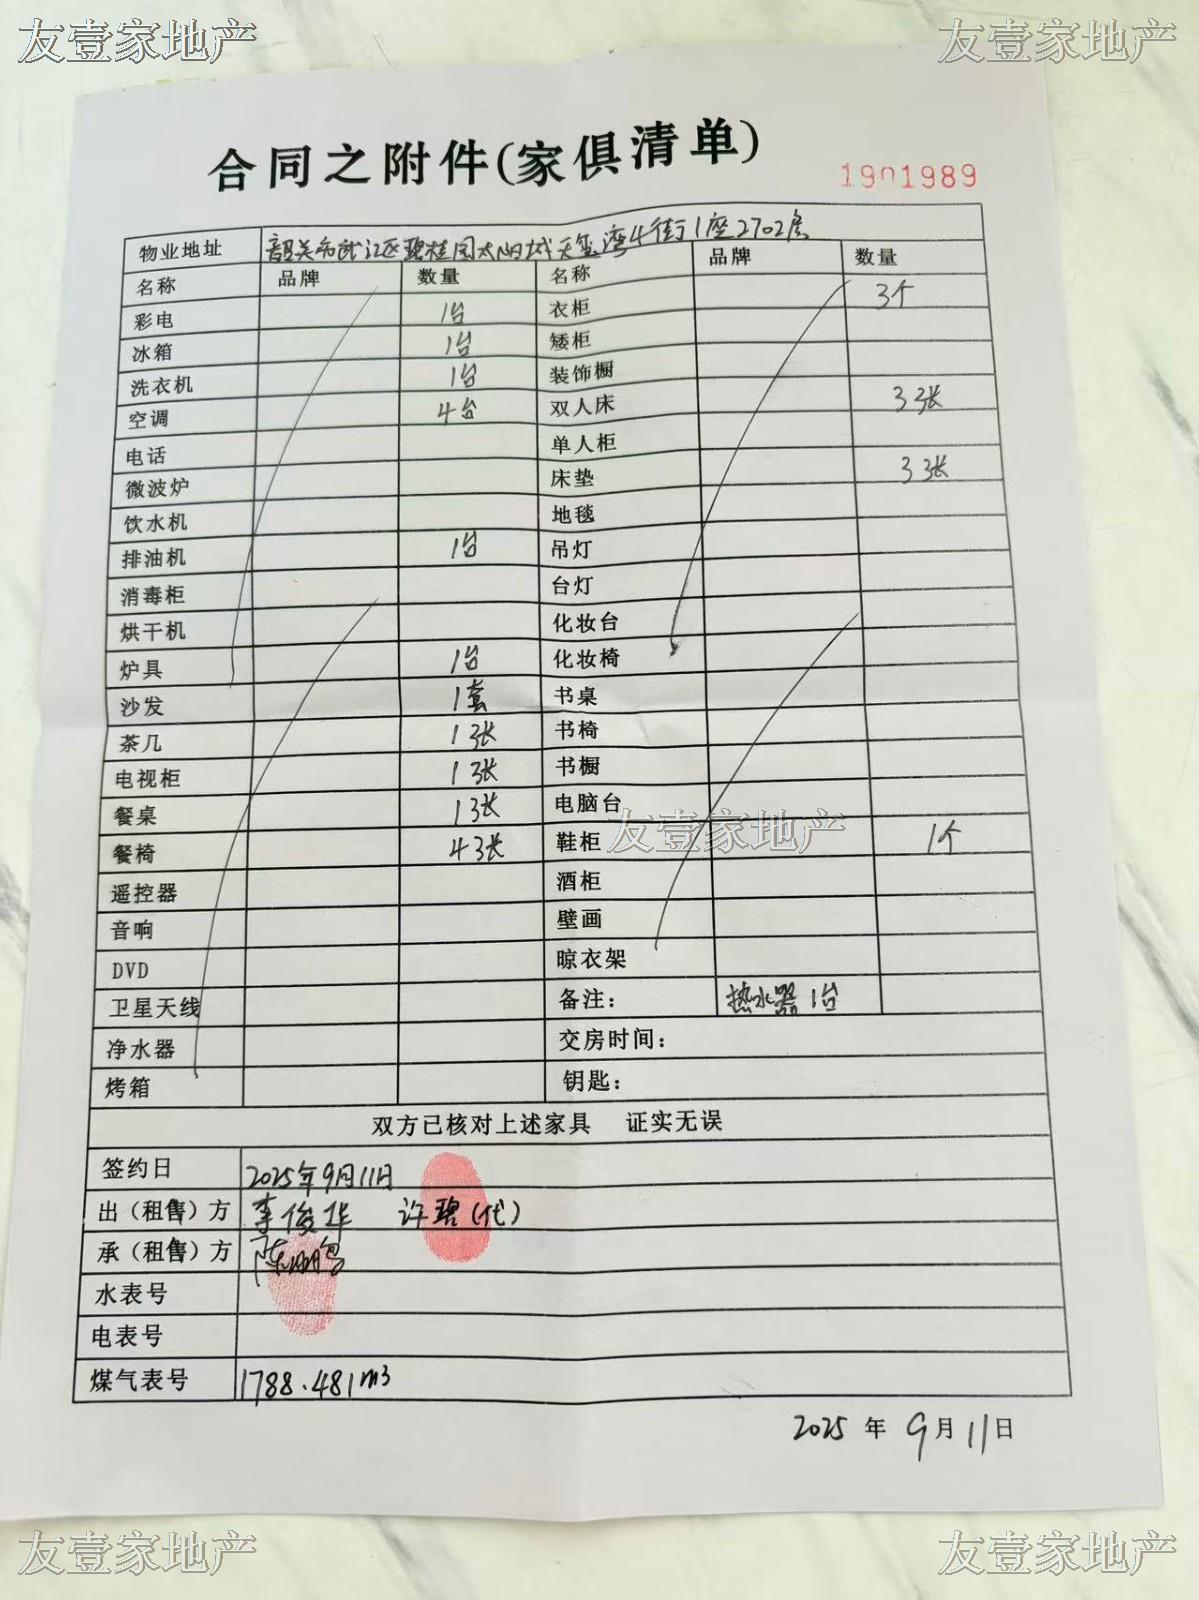 友壹家地产 友壹家地产
合同之附件(家俱清单)
1901989
物业地址 韶关市武江区碧桂园太阳城天玺湾4街1座2702房
名称 品牌 数量 名称 品牌 数量
彩电 1台 衣柜 3个
冰箱 1台 矮柜
洗衣机 1台 装饰橱
空调 4台 双人床 3张
电话 单人柜
微波炉 床垫 3张
饮水机 地毯
排油机 1台 吊灯
消毒柜 台灯
烘干机 化妆台
炉具 1台 化妆椅
沙发 1套 书桌
茶几 1张 书椅
电视柜 1张 书橱
餐桌 1张 电脑台
友壹家地产
餐椅 4张 鞋柜 1个
遥控器 酒柜
音响 壁画
DVD 晾衣架
卫星天线 备注: 热水器1台
净水器 交房时间:
烤箱 钥匙:
双方已核对上述家具 证实无误
签约日 2025年9月11日
出(租售)方 李俊华 许碧(代)
承(租售)方 陈
水表号
电表号
煤气表号 1788.481m3
2025年9月11日
友壹家地产 友壹家地产